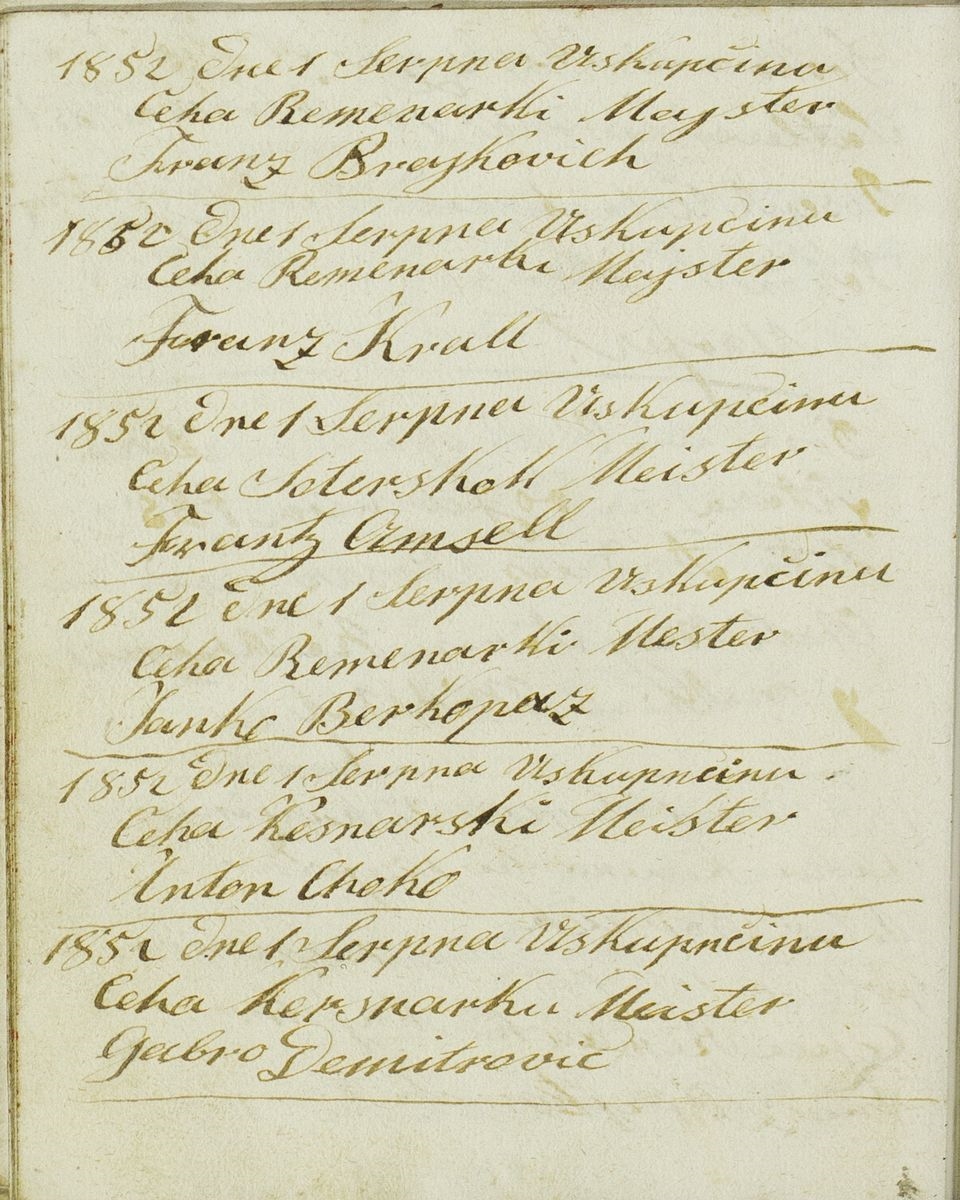 1852 Dne 1 Serpna Uskupčinu
Ceha Remenarki Majster
Franz Braykovich
1852 Dne 1 Serpna Uskupčinu
Ceha Remenarki Majster
Franz Krall
1852 Dne 1 Serpna Uskupčinu
Ceha Meister
Frantz Amsell
1852 Dne 1 Serpna Uskupčinu
Ceha Remenarki Mester
Janko Berkopaz
1852 Dne 1 Serpna Uskupnčinu
Ceha Kesnarski Meister
Anton Choko
1852 Dne 1 Serpna Uskupnčinu
Ceha Kersnarku Meister
Gabro Demitrovic